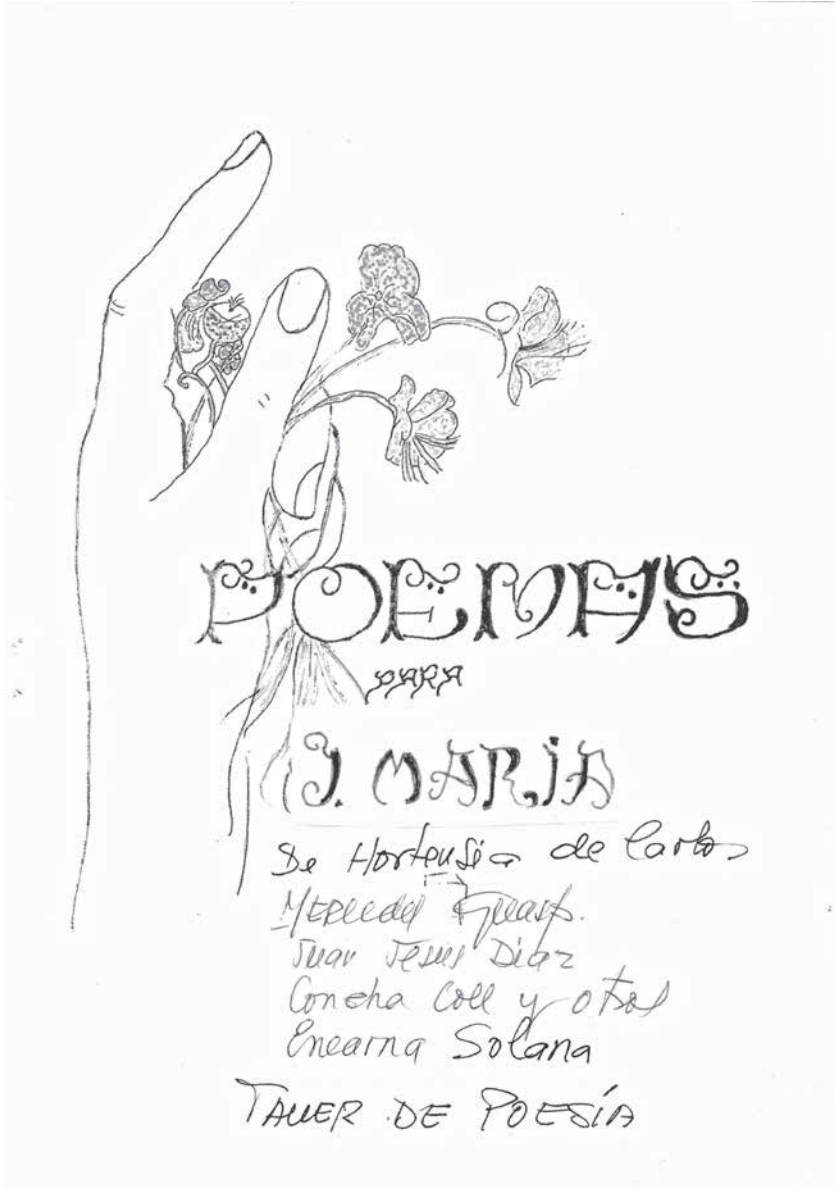 POEMAS
PARA
J. MARIA
De Hortensia de Carlos
Mercedes Guasp.
Juan Jesus Diaz
Concha Coll y otros
Encarna Solana
TALLER DE POESÍA